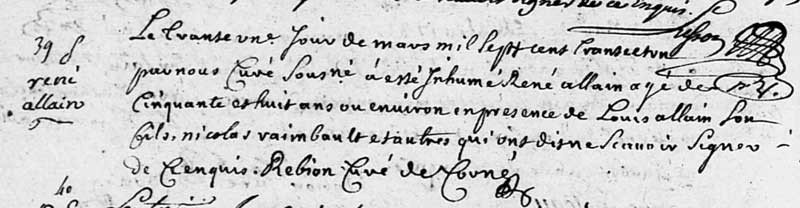 signer de ce Enquis
Le Tranteune Jour de mars mil Sept cent Trante et un
39 S
rené
allain
par nous Curé Sousné a esté Inhumé René allain agé de
Cinquante et huit ans ou environ en presence de Louis allain Son
fils, nicolas raimbault et autres qui ont dit ne Scavoir Signer
de ce Enquis. Rebion Curé de Corné
40